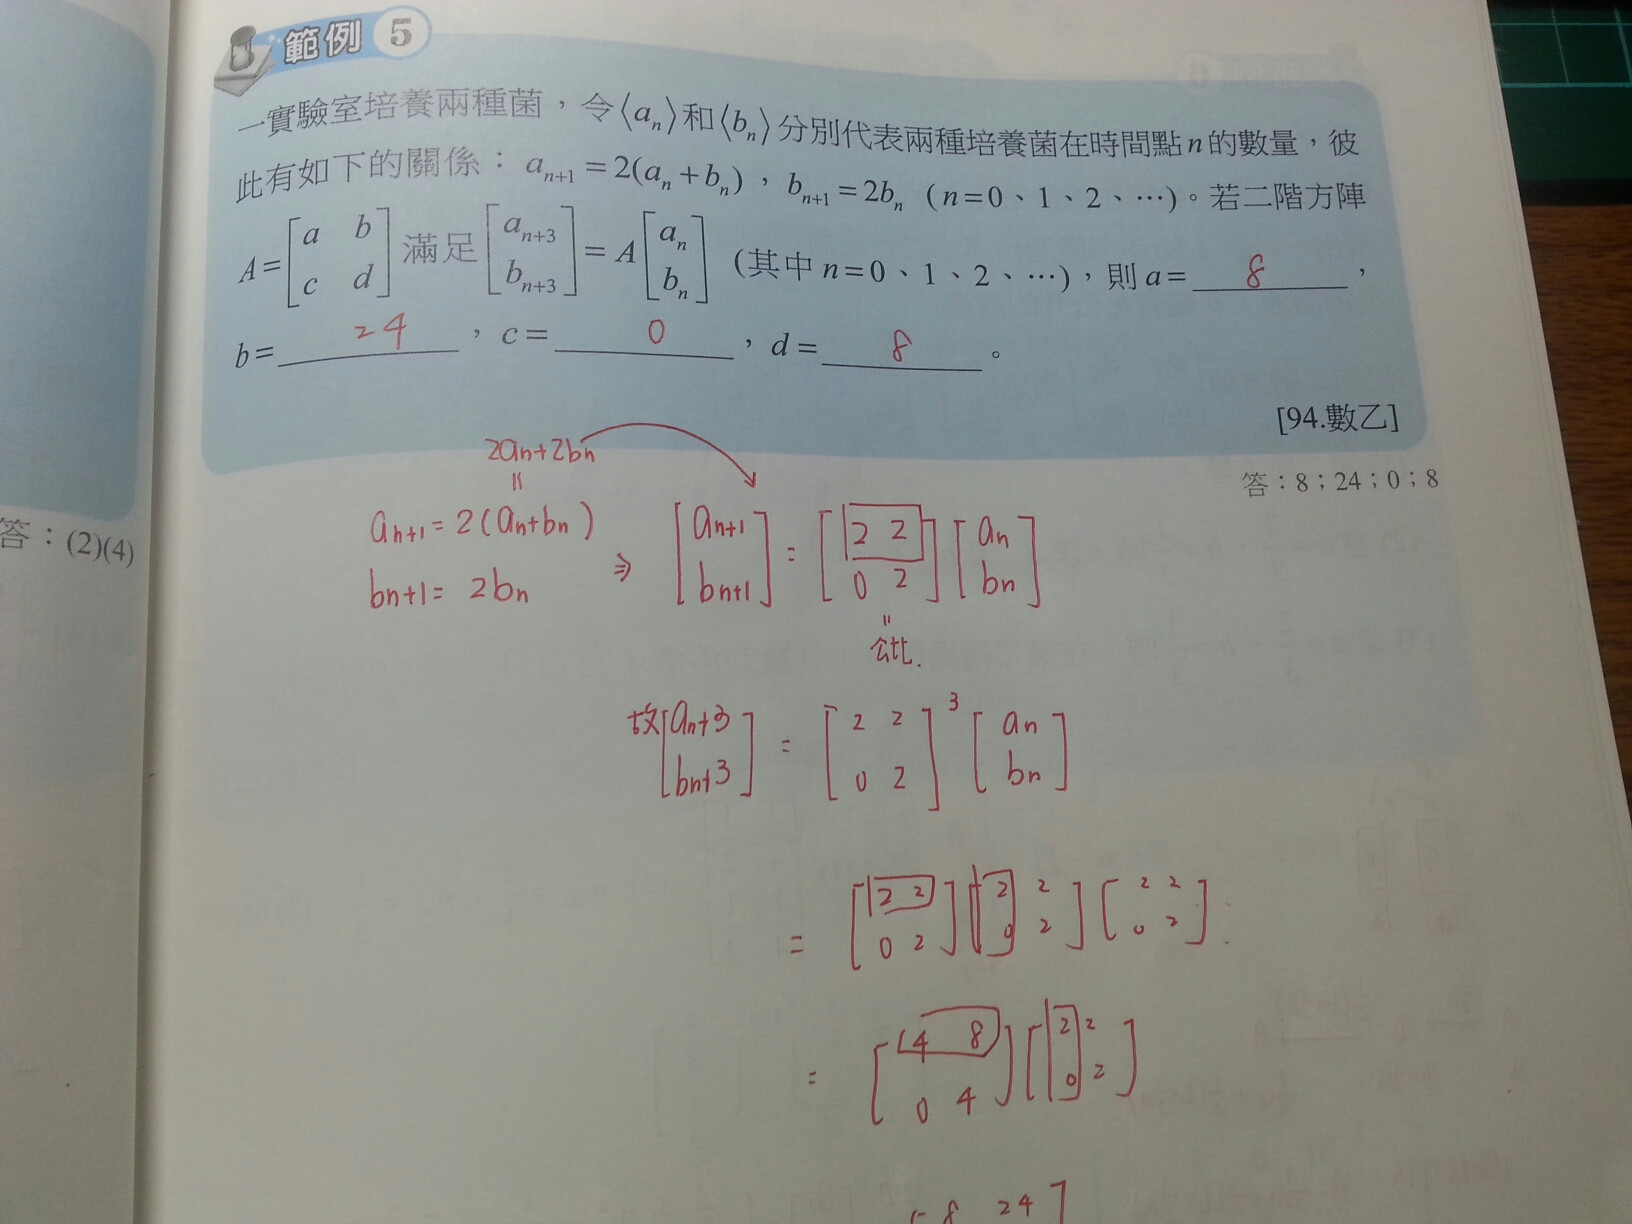 範例 5
一實驗室培養兩種菌，令⟨aₙ⟩和⟨bₙ⟩分別代表兩種培養菌在時間點n的數量，彼
此有如下的關係：aₙ₊₁=2(aₙ+bₙ)，bₙ₊₁=2bₙ (n=0、1、2、…)。若二階方陣
A=[a b; c d]滿足[aₙ₊₃; bₙ₊₃]=A[aₙ; bₙ] (其中n=0、1、2、…)，則a=8，
b=24，c=0，d=8。
[94.數乙]
答：8；24；0；8
答：(2)(4)
2an+2bn
=
an+1=2(an+bn)
bn+1=2bn
⇒ [an+1; bn+1] = [2 2; 0 2][an; bn]
=
公比.
故[an+3; bn+3] = [2 2; 0 2]³[an; bn]
= [2 2; 0 2][2 2; 0 2][2 2; 0 2]
= [4 8; 0 4][2 2; 0 2]
8 24]